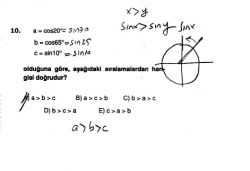 x>y
sinx>siny
sinx
10. a = cos20° = sin70
b = cos65° = sin25
c = sin10° = sin10
olduğuna göre, aşağıdaki sıralamalardan han-
gisi doğrudur?
a > b > c B) a > c > b C) b > a > c
D) b > c > a E) c > b > a
a>b>c